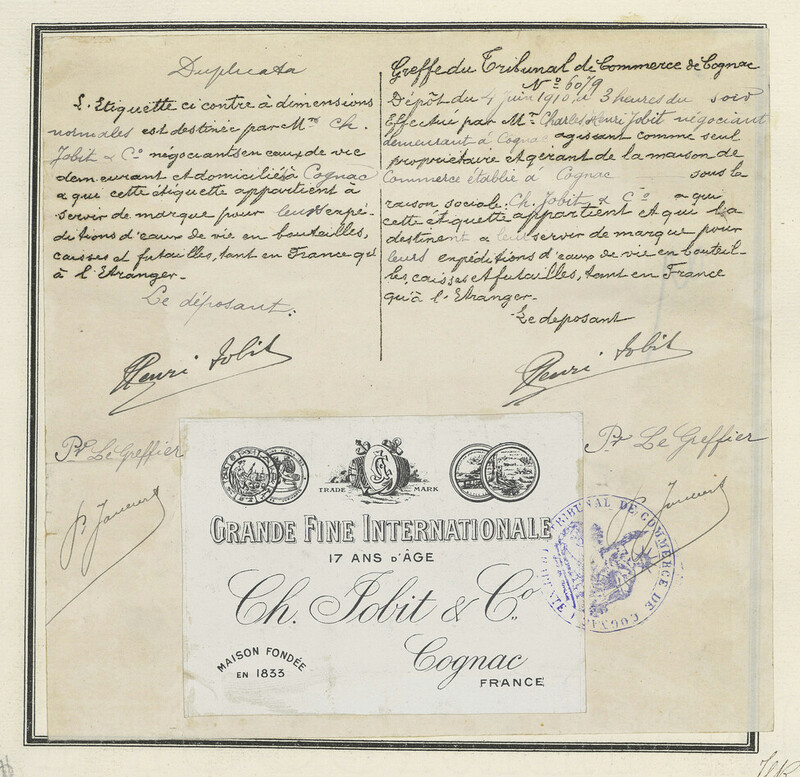 Duplicata
L'Etiquette ci contre à dimensions
normales est destinée par Mrs Ch.
Jobit & Co négociants en eaux de vie
demeurant et domiciliés à Cognac
a qui cette étiquette appartient à
servir de marque pour leurs expé-
ditions d'eaux de vie en bouteilles,
caisses et futailles, tant en France qu'
à l'Etranger.
Le déposant.
Henri Jobit
Pr Le Greffier
Greffe du Tribunal de Commerce de Cognac
No 6079
Dépôt du 4 juin 1910 à 3 heures du soir
Effectué par Mr Charles Henri Jobit négociant
demeurant à Cognac agissant comme seul
propriétaire et gérant de la maison de
Commerce établie à Cognac sous la
raison sociale Ch. Jobit & Co a qui
cette étiquette appartient et qui la
destinent a leur servir de marque pour
leurs expéditions d'eaux de vie en bouteil-
les, caisses et futailles, tant en France
qu'à l'Etranger.
Le deposant
Henri Jobit
Pr Le Greffier
TRADE MARK
GRANDE FINE INTERNATIONALE
17 ANS D'ÂGE
Ch. Jobit & Co.
MAISON FONDÉE
EN 1833
Cognac
FRANCE
TRIBUNAL DE COMMERCE DE COGNAC